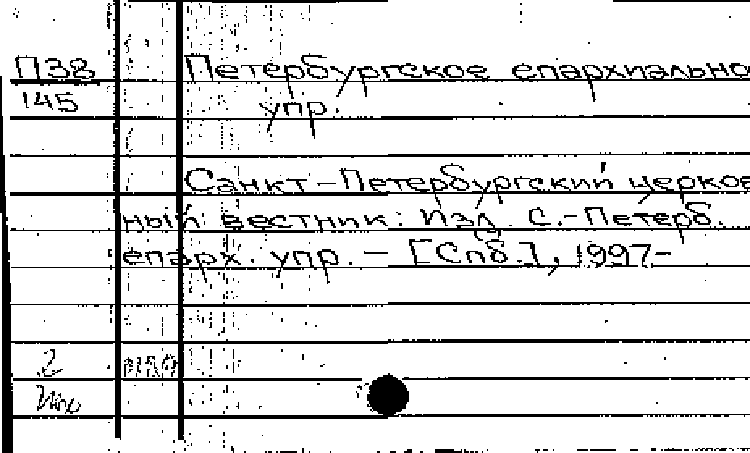 П38 Петербургское епархиально
145 упр.
Санкт-Петербургский церков
ный вестник: Изд. С.-Петерб.
епарх. упр. — [Спб.], 1997-
2